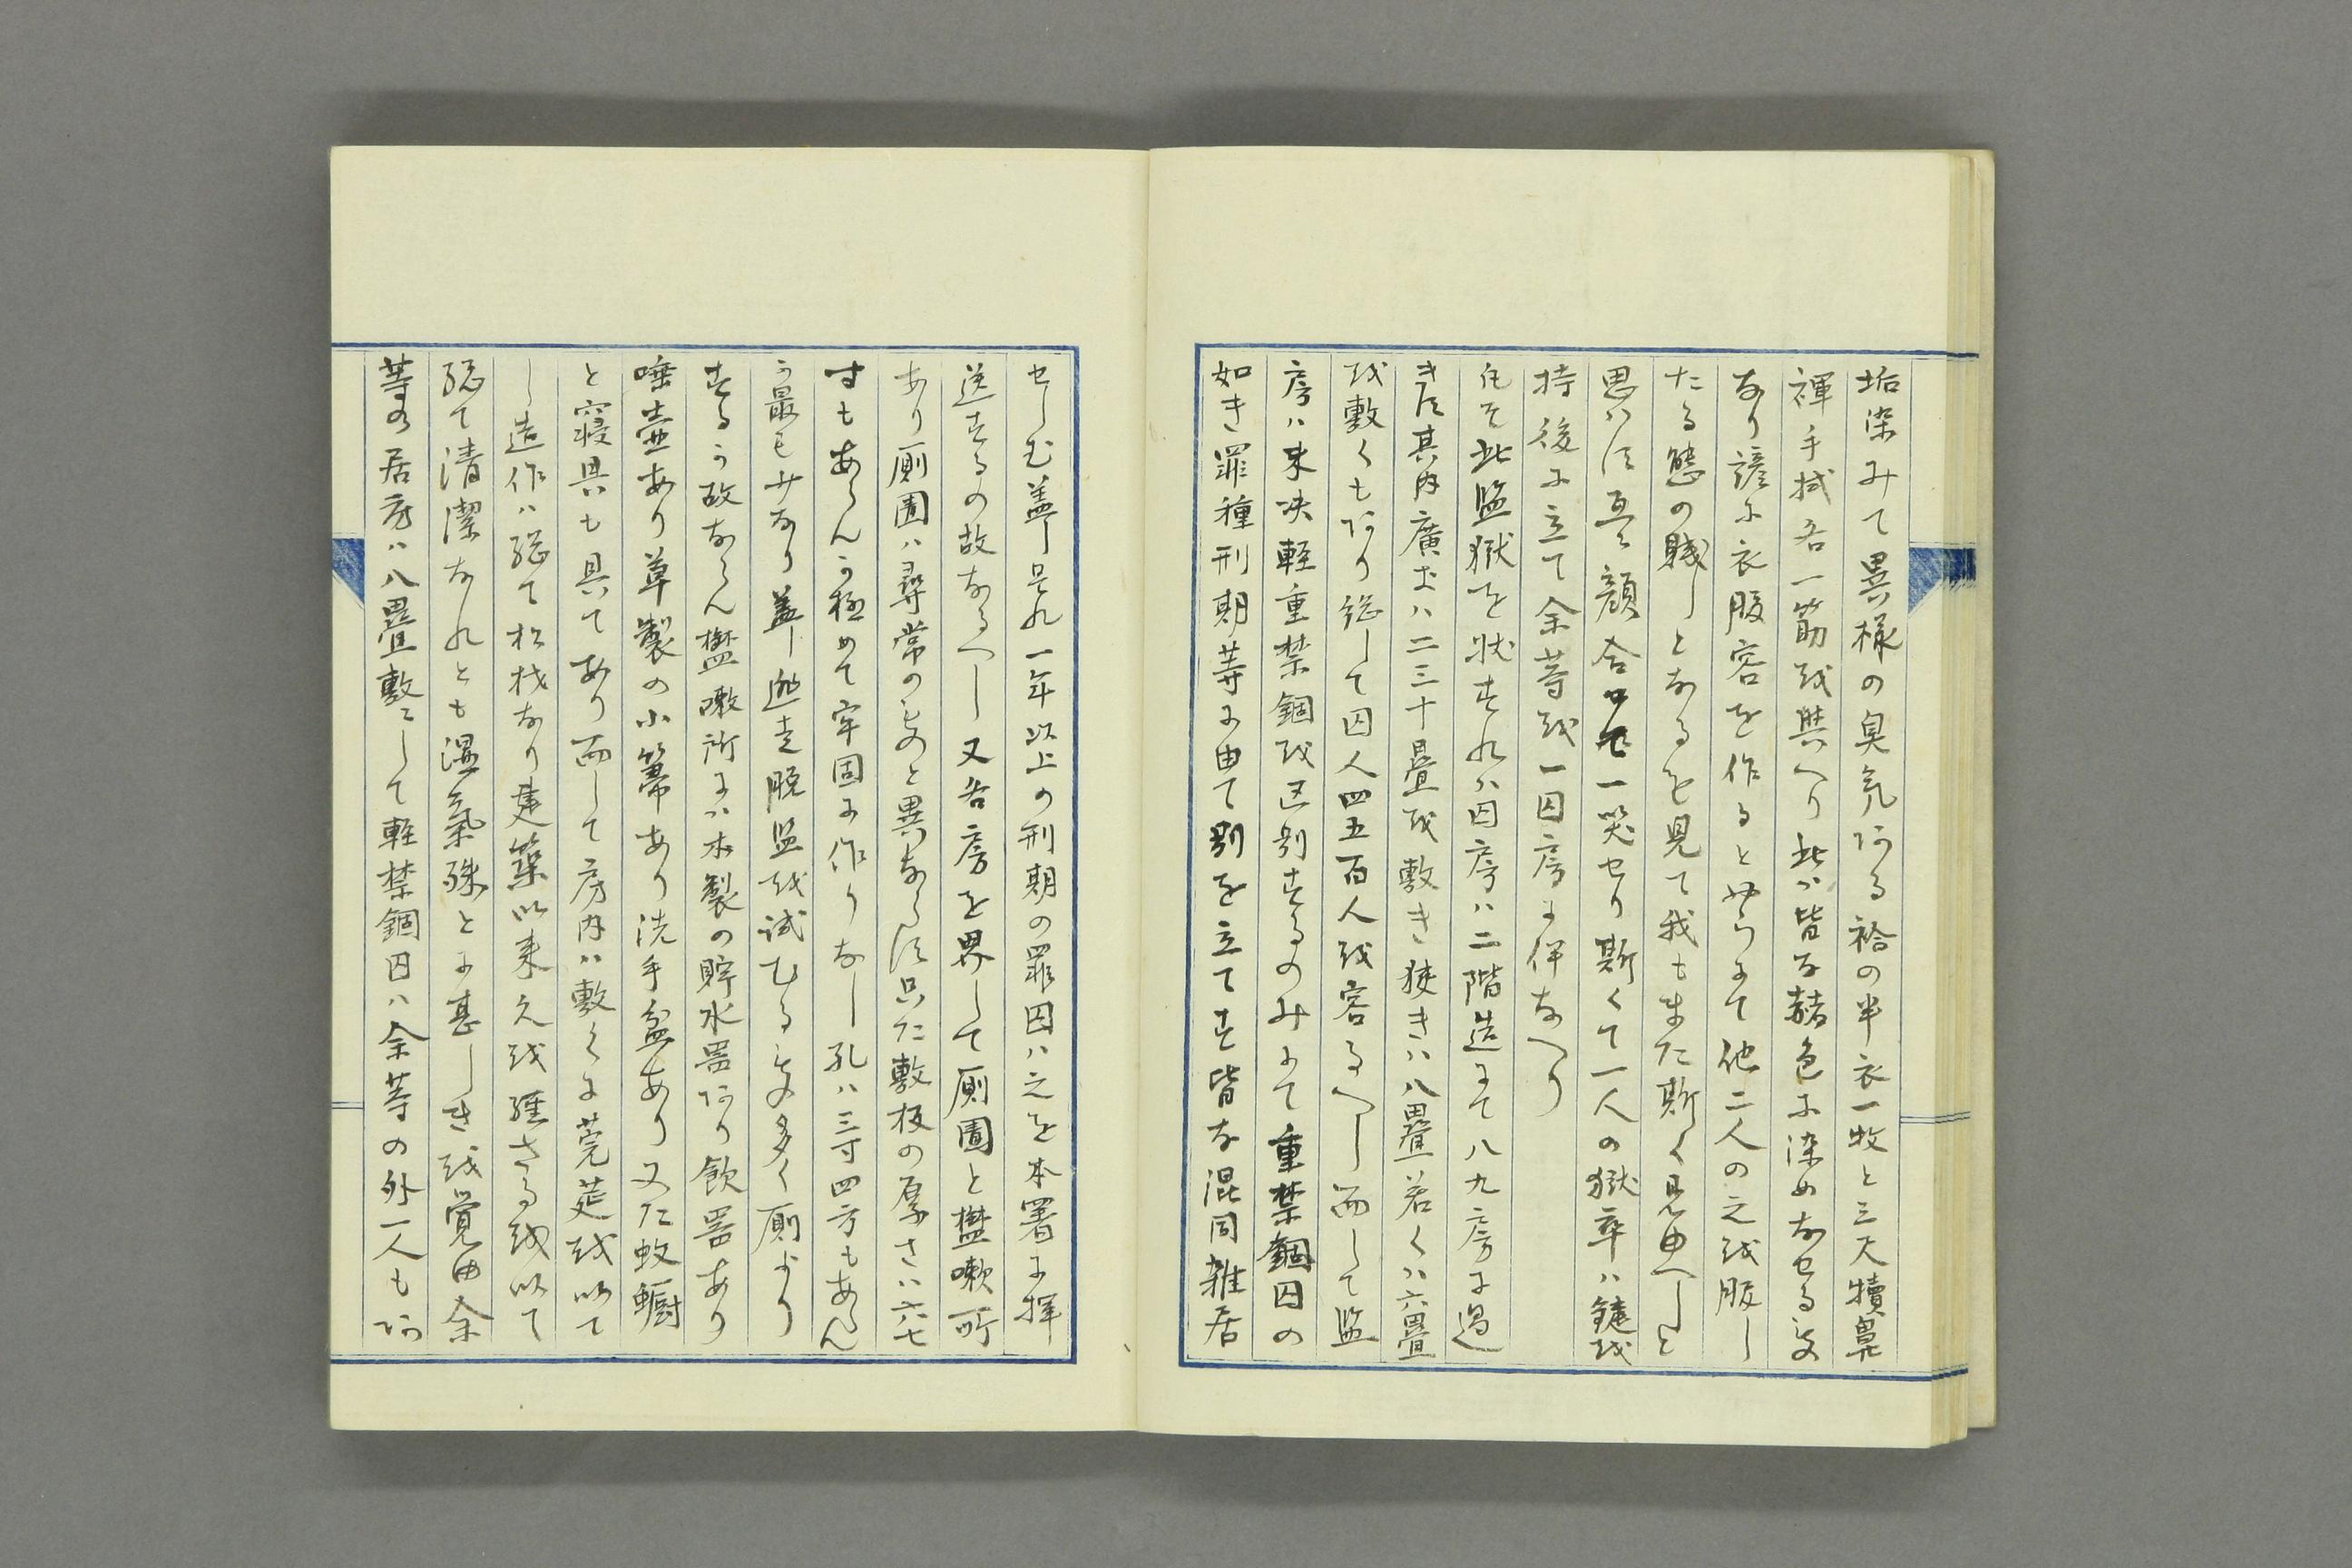 垢染みて異様の臭気ある袷の半衣一枚と三尺犢鼻
褌手拭各一筋を與へり此ハ皆な赭色に染めなせる者
なり諺に衣服容を作るとやらにて他二人の之を服し
たる態の賤しとなるを見て我もまた斯く見ゆへしと
思ハす互に顔合せ一笑せり斯くて一人の獄卒ハ鍵を
持後に立て余等を一囚房に伴なへり
先つ此監獄を状すれハ囚房ハ二階造にて八九房に過
きす其内廣きハ二三十畳を敷き狭きハ八畳若くハ六畳
を敷くもあり総して囚人四五百人を容るへし而して監
房ハ未決軽重禁錮を区別するのみにて重禁錮囚の
如き罪種刑期等に由て別を立てす皆な混同雑居
せしむ蓋し是れ一年以上の刑期の罪囚ハ之を本署に押
送するの故なるへし又各房を界して厠圊と盥嗽所
あり厠圊ハ尋常のものと異ならす只た敷板の厚さハ六七
寸もあらんか極めて牢固に作りなし孔ハ三寸四方もあらん
か最も小なり蓋し逃走脱監を試むる者多く厠より
するか故ならん盥嗽所にハ木製の貯水器あり飲器あり
唾壷あり草製の小箒あり洗手盆あり又た蚊幮
と寝具も具てあり而して房内ハ敷くに莞莚を以て
し造作ハ総て松材なり建築以来久を経さるを以て
総て清潔なれとも湿氣殊とに甚しきを覚ゆ余
等の居房ハ八畳敷にして軽禁錮囚ハ余等の外一人もあ